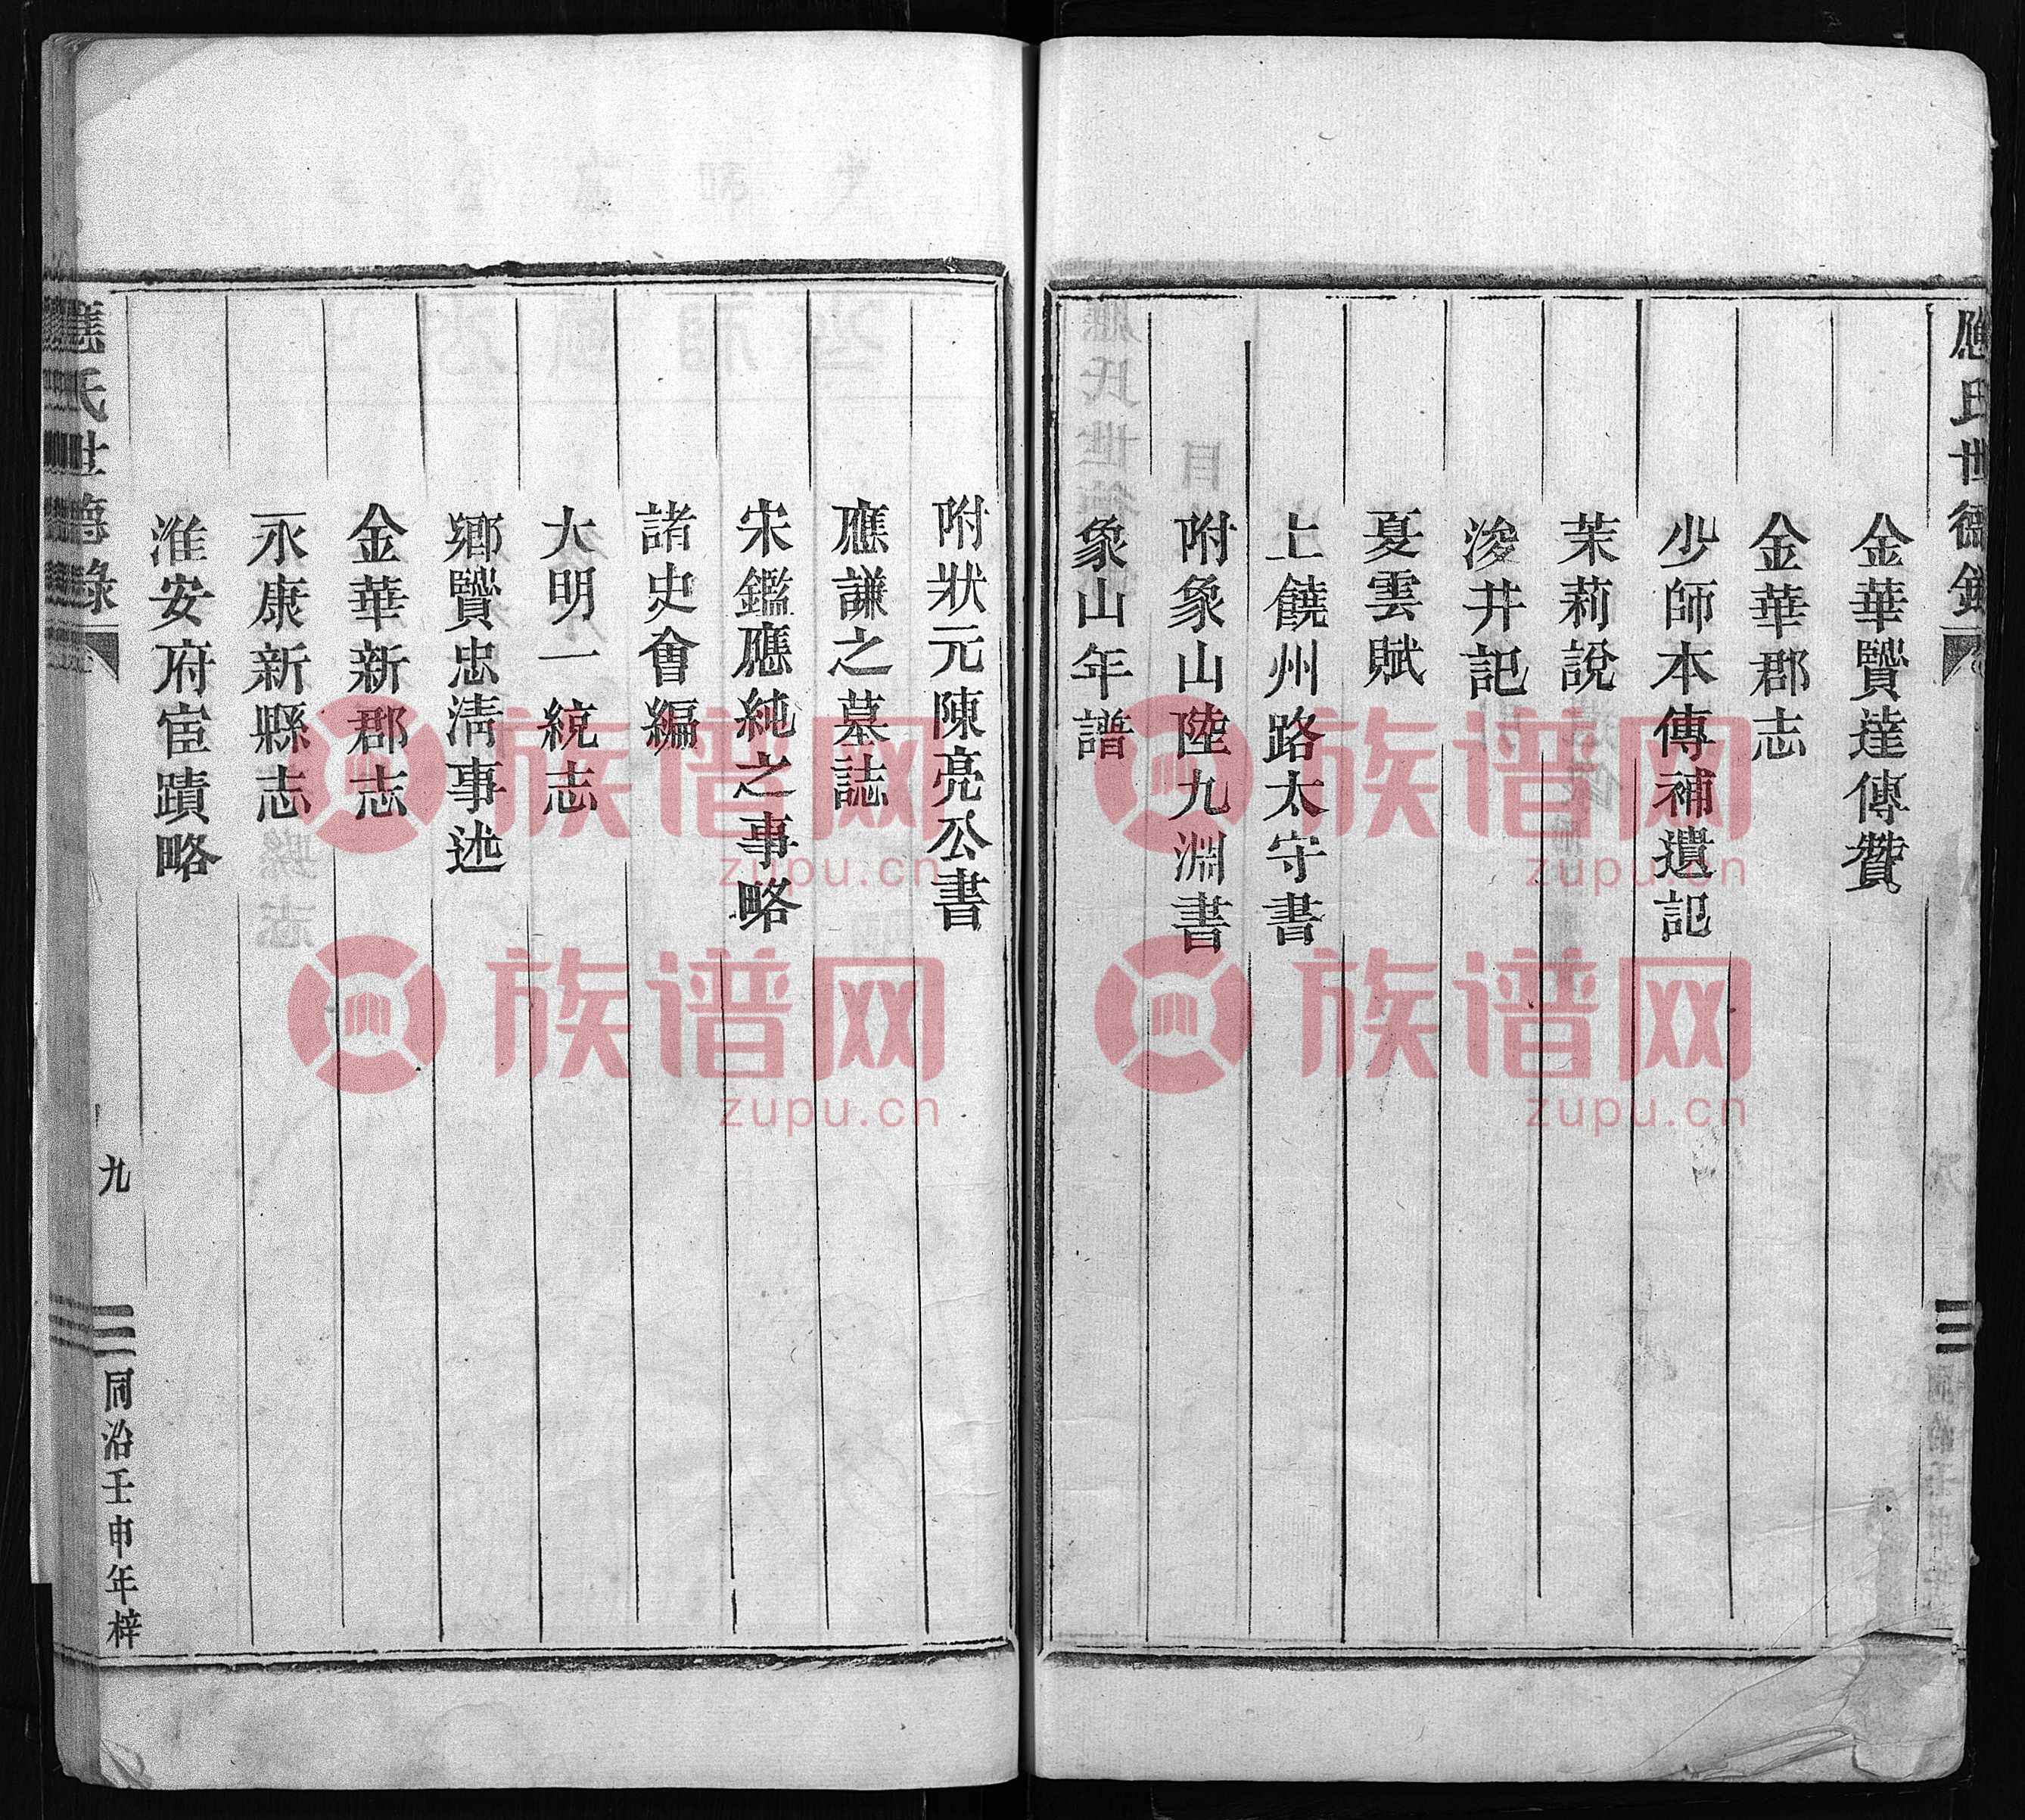 應氏世德錄
金華賢達傳贊
金華郡志
少師本傳補遺記
茉莉說
浚井記
夏雲賦
上饒州路太守書
附象山陸九淵書
象山年譜
附狀元陳亮公書
應謙之墓誌
宋鑑應純之事略
諸史會編
大明一統志
鄉賢忠淸事述
金華新郡志
永康新縣志
淮安府宦蹟略
應氏世德錄
九
同治壬申年梓
族谱网
zupu.cn
族谱网
zupu.cn
族谱网
zupu.cn
族谱网
zupu.cn